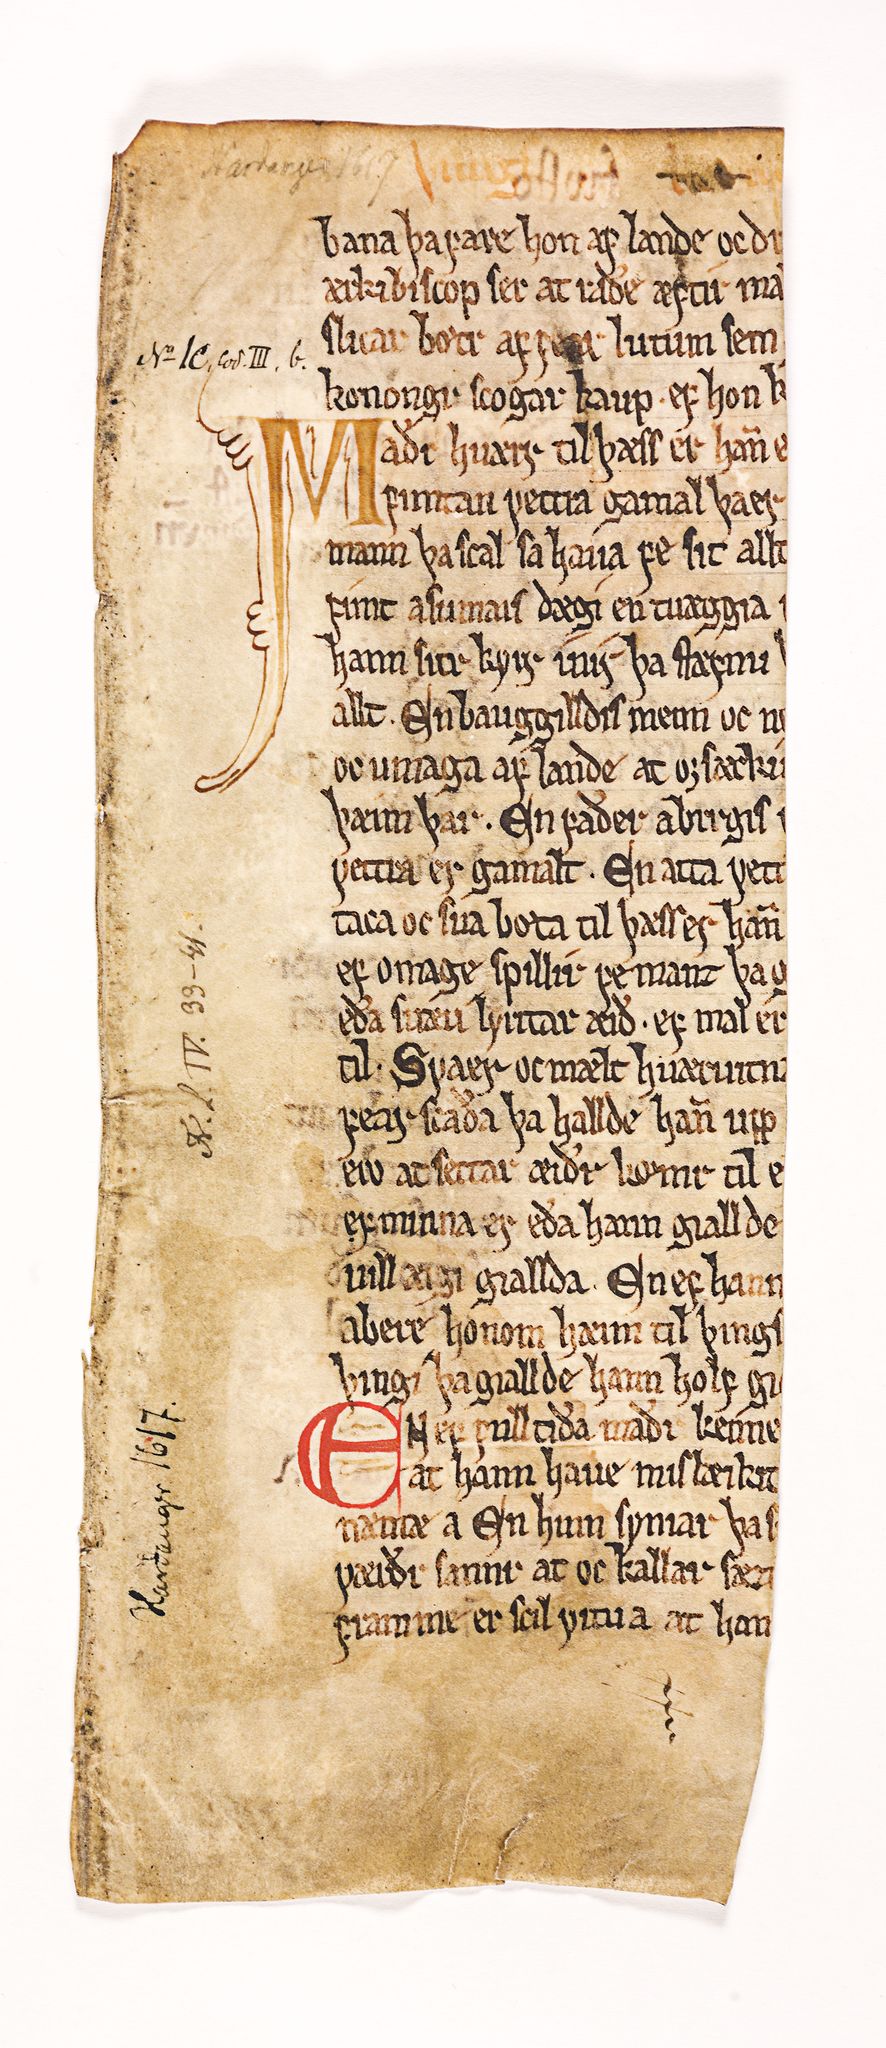 Hardanger 1617
bana þa fare hon af lande oc dr
ærkibiscop ser at raðe æftir ma
slicar bøtr af feær lutum sem
konongr scogar kaup · ef hon k
Maðr huærs til þæss er han̄ e
fimtan vettra gamal þa er
mann þa scal sa haua fe sit allt
fimt a sumars dægi en tuæggia
hann sitr kyrr
allt . En bauggilldis menn oc n
oc umaga af lande at orsækiu
þæim þar . En faðer abirgis
vettra er gamalt . En atta vett
taca oc sua bøta til þæss er han̄
ef omage spillir fe manz þa g
eða suæu lyritar æið · ef mal er
til . Sva er oc mælt huæruitna
fear scaða þa hallde han̄ upp
ero at settar æiðr kømr til e
ef minna er eða hann giallde
uill æigi giallda . En ef hann
abere honom hæim til þings
þingi þa giallde hann holf gi
EN er fulltiða maðr kenne
at hann haue mislæikit
næmæ a En hum syniar þa s
væiðr sannr at oc kallar sæn
framme er scil vitu a at han
No 1C, Cod. III, b.
N. L. IV. 33-41.
Hardanger 1617.